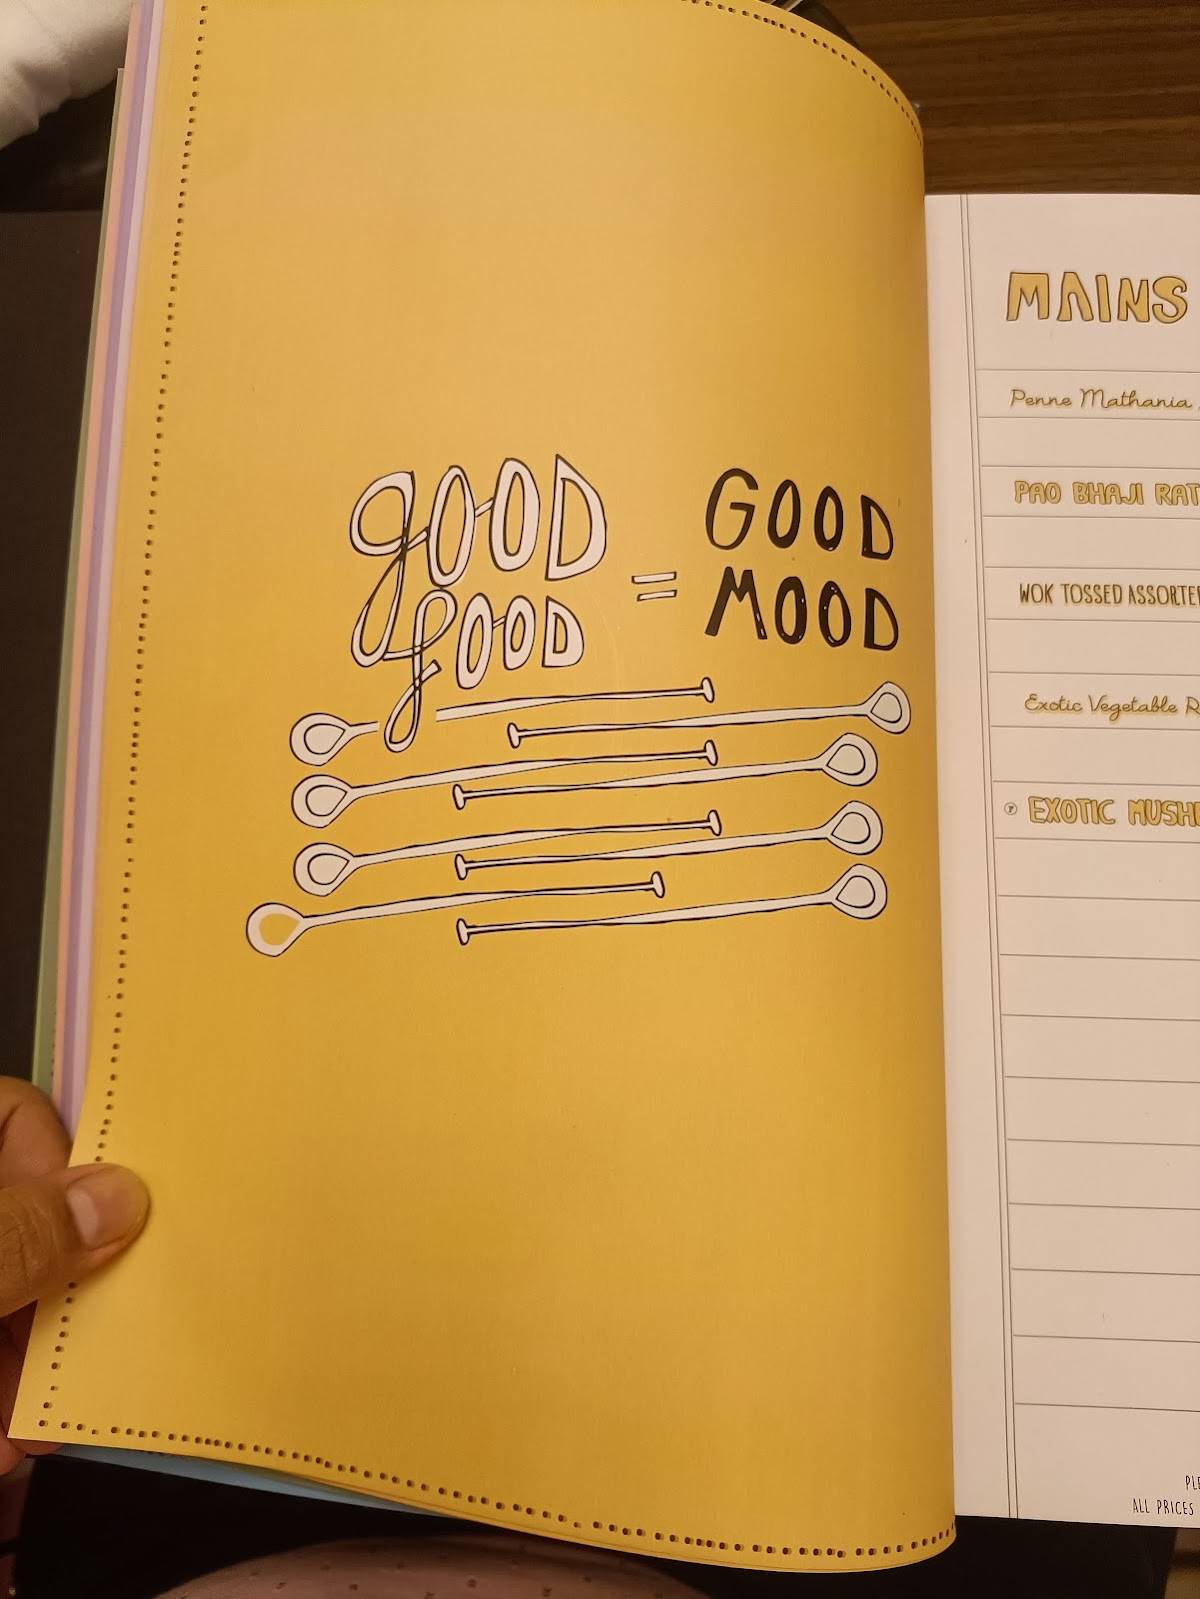 gOOD
fOOD
=
GOOD
MOOD
MAINS
Penne Mathania
PAO BHAJI
WOK TOSSED
Exotic Vegetable
EXOTIC
ALL PRICES